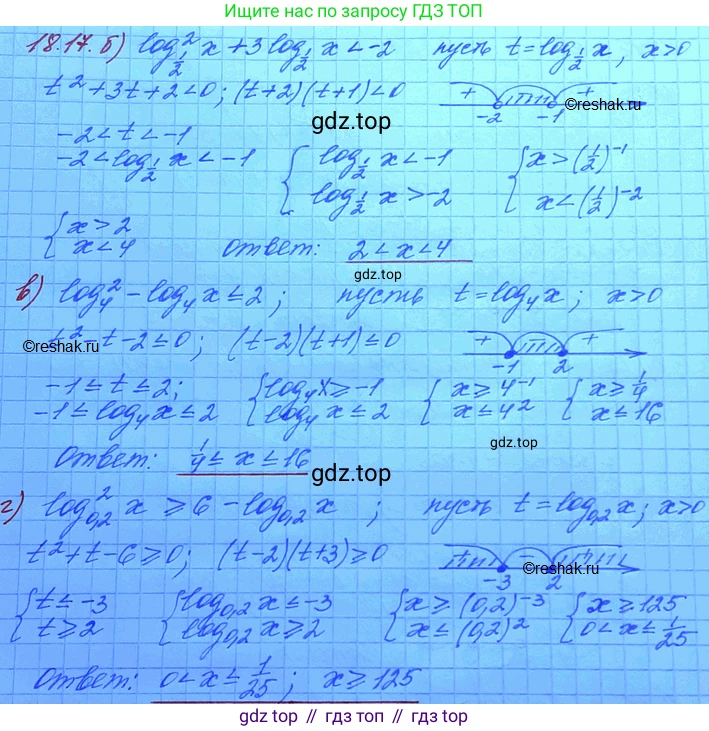 Ищите нас по запросу ГДЗ ТОП
18.17. б) log²_{1/2} x + 3 log_{1/2} x < -2 пусть t = log_{1/2} x, x>0
t² + 3t + 2 < 0; (t+2)(t+1) < 0 + -2 -1 + ©reshak.ru
gdz.top
-2 < t < -1
-2 < log_{1/2} x < -1 { log_{1/2} x < -1 { x > (1/2)⁻¹
log_{1/2} x > -2 x < (1/2)⁻²
{ x > 2
x < 4 ответ: 2 < x < 4
gdz.top
в) log²_4 - log_4 x ≤ 2; пусть t = log_4 x; x>0
t² - t - 2 ≤ 0; (t-2)(t+1) ≤ 0 + -1 2 +
©reshak.ru ©reshak.ru
-1 ≤ t ≤ 2; { log_4 x ≥ -1 { x ≥ 4⁻¹ { x ≥ 1/4
-1 ≤ log_4 x ≤ 2 log_4 x ≤ 2 x ≤ 4² x ≤ 16
gdz.top
Ответ: 1/4 ≤ x ≤ 16
gdz.top
г) log²_{0,2} x ≥ 6 - log_{0,2} x; пусть t = log_{0,2} x; x>0
t² + t - 6 ≥ 0; (t-2)(t+3) ≥ 0 + -3 - 2 + ©reshak.ru
{ t ≤ -3 { log_{0,2} x ≤ -3 { x ≥ (0,2)⁻³ { x ≥ 125
t ≥ 2 log_{0,2} x ≥ 2 x ≤ (0,2)² 0 < x ≤ 1/25
gdz.top
ответ: 0 < x ≤ 1/25; x ≥ 125
gdz.top // гдз топ // gdz top